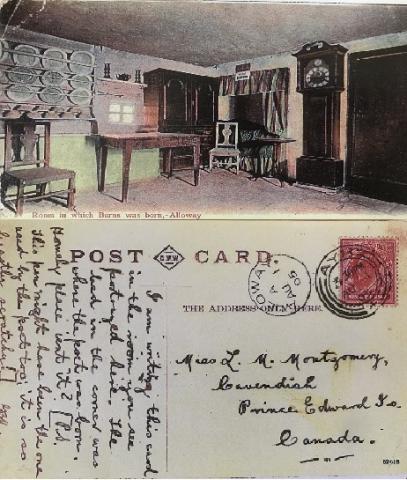 Room in which Burns was born,-Alloway
POST CARD
THE ADDRESS ONLY HERE.
Miss L. M. Montgomery,
Cavendish
Prince Edward Is.
Canada.
I am writing this card
in the room you see
portrayed here. The
bed in the corner was
where the poet was born.
Homely place isn't it? [P.S.
This pen might have been the one
used by the poet too; it is so
ALLOWAY
AYR